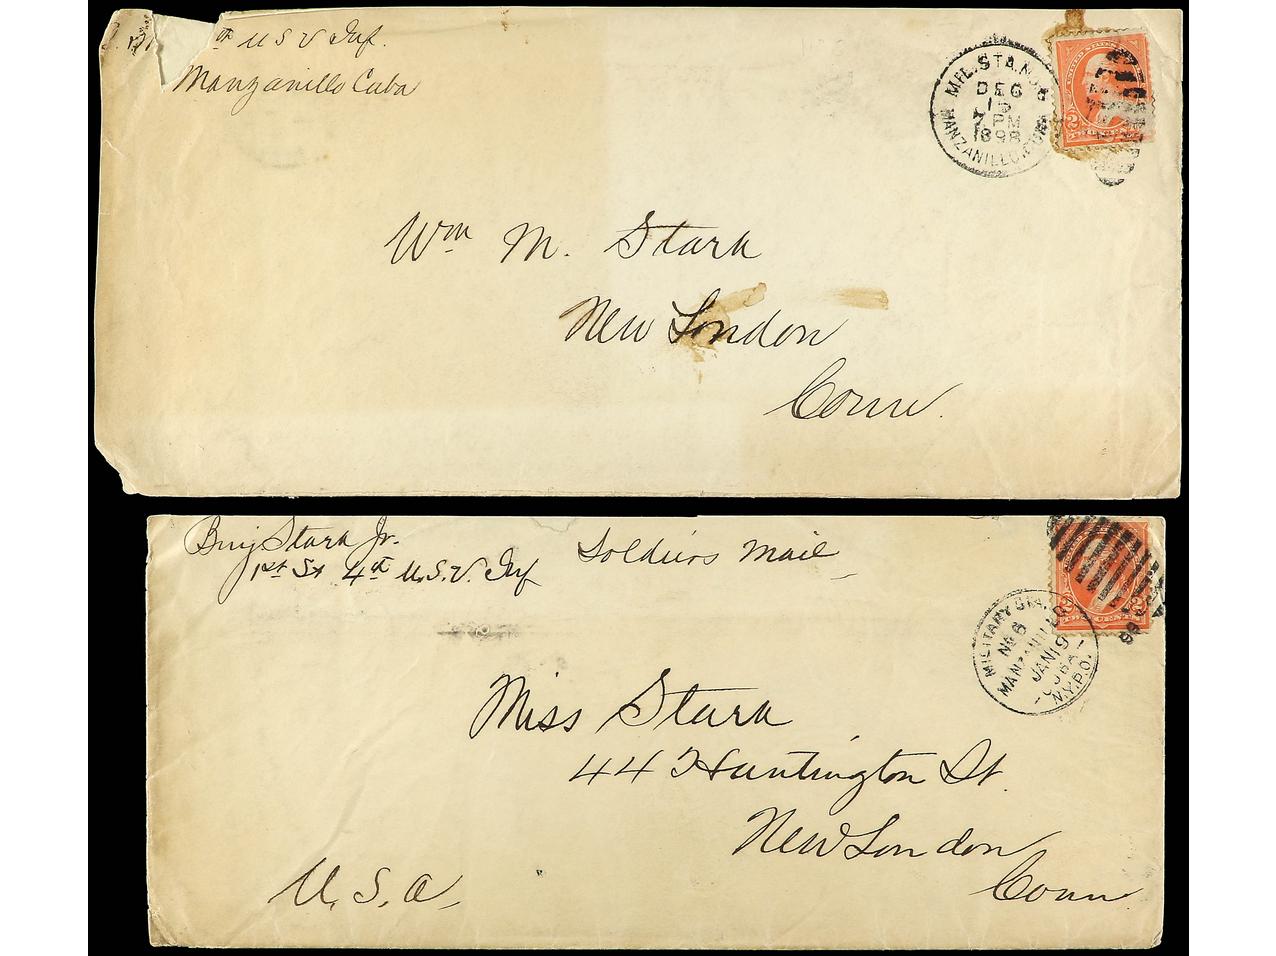 th U S V Inf.
Manzanillo Cuba
MIL. STA. No
MANZANILLO, CUBA
DEC
15
7 PM
1898
UNITED STATES
2
Wm M. Stark
New London
Conn.
Benj Stark Jr.
1st St 4th U.S.V. Inf
Soldiers Mail
MILITARY STA.
No 6
MANZANILLO
JAN 19
N.Y.P.O.
2
2
CENTS
Miss Stark
44 Huntington St.
New London
Conn
U.S.A.